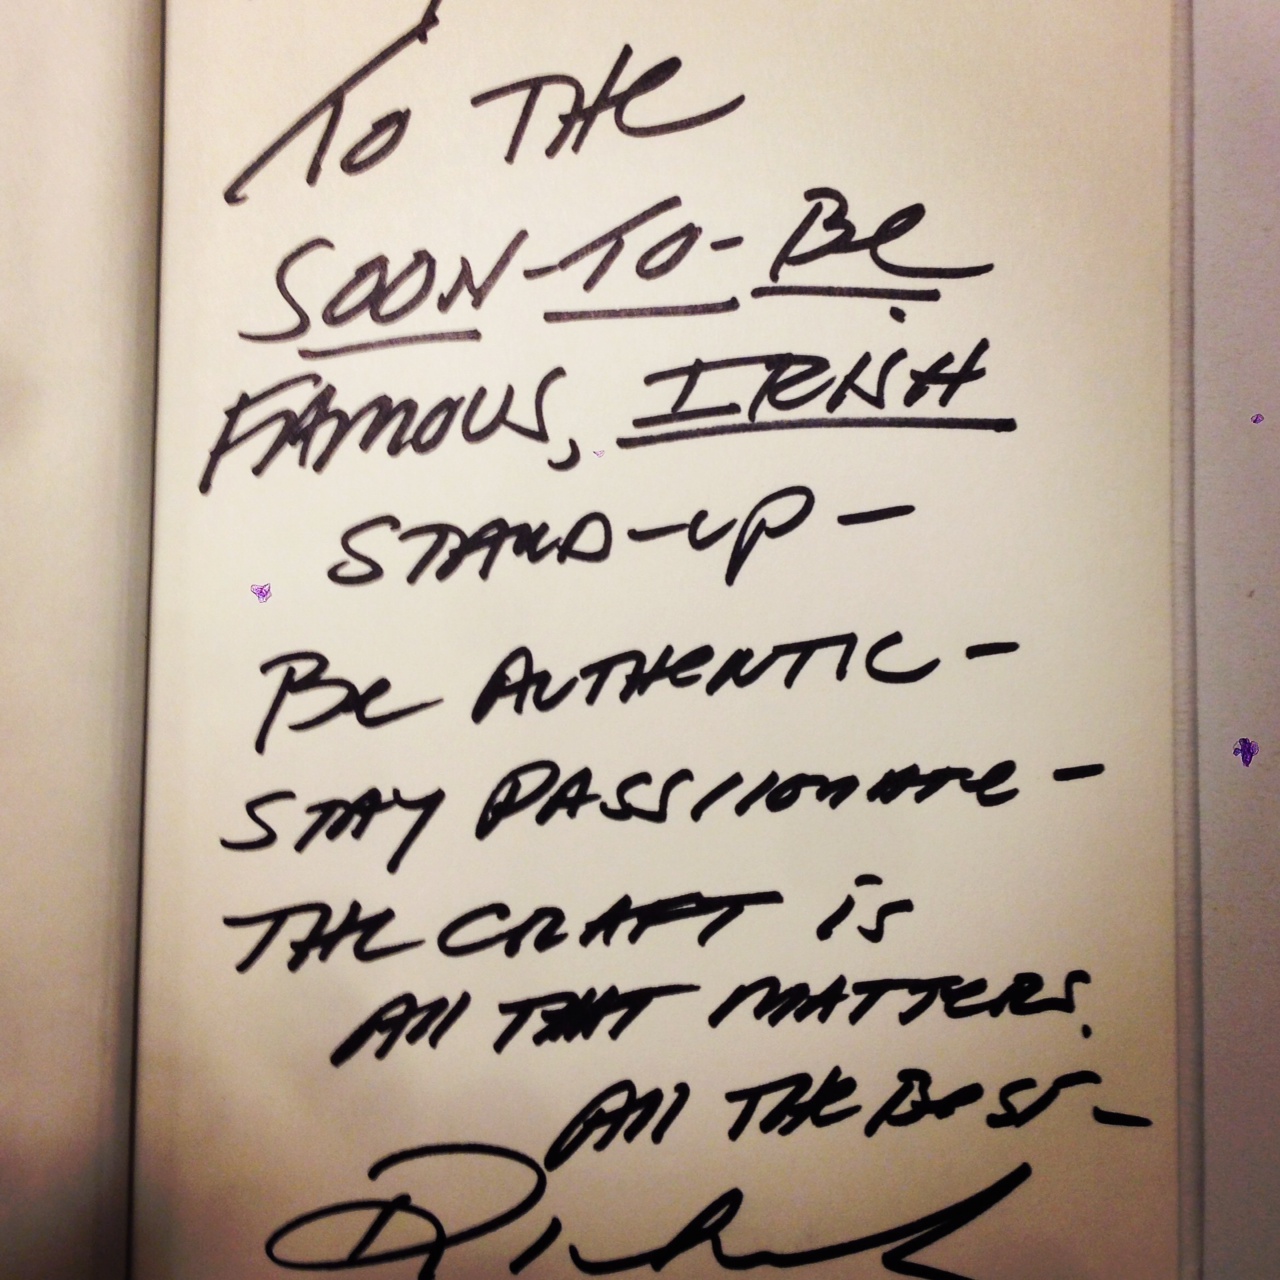 To THe
SOON-TO-Be
FAMOUS, IRiSH
STAND-UP -
Be AUTHeNTIC -
STAY PASSIONATe -
THe CRAFT iS
All THAT MATTeRS.
All THe BeST -